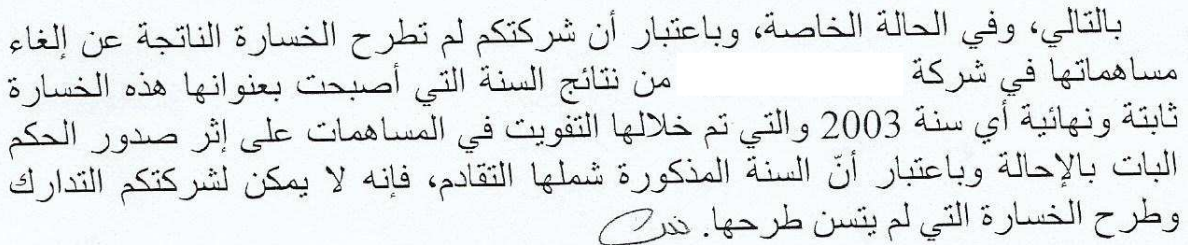 بالتالي، وفي الحالة الخاصة، وباعتبار أن شركتكم لم تطرح الخسارة الناتجة عن إلغاء
مساهماتها في شركة من نتائج السنة التي أصبحت بعنوانها هذه الخسارة
ثابتة ونهائية أي سنة 2003 والتي تم خلالها التفويت في المساهمات على إثر صدور الحكم
البات بالإحالة وباعتبار أنّ السنة المذكورة شملها التقادم، فإنه لا يمكن لشركتكم التدارك
وطرح الخسارة التي لم يتسن طرحها.